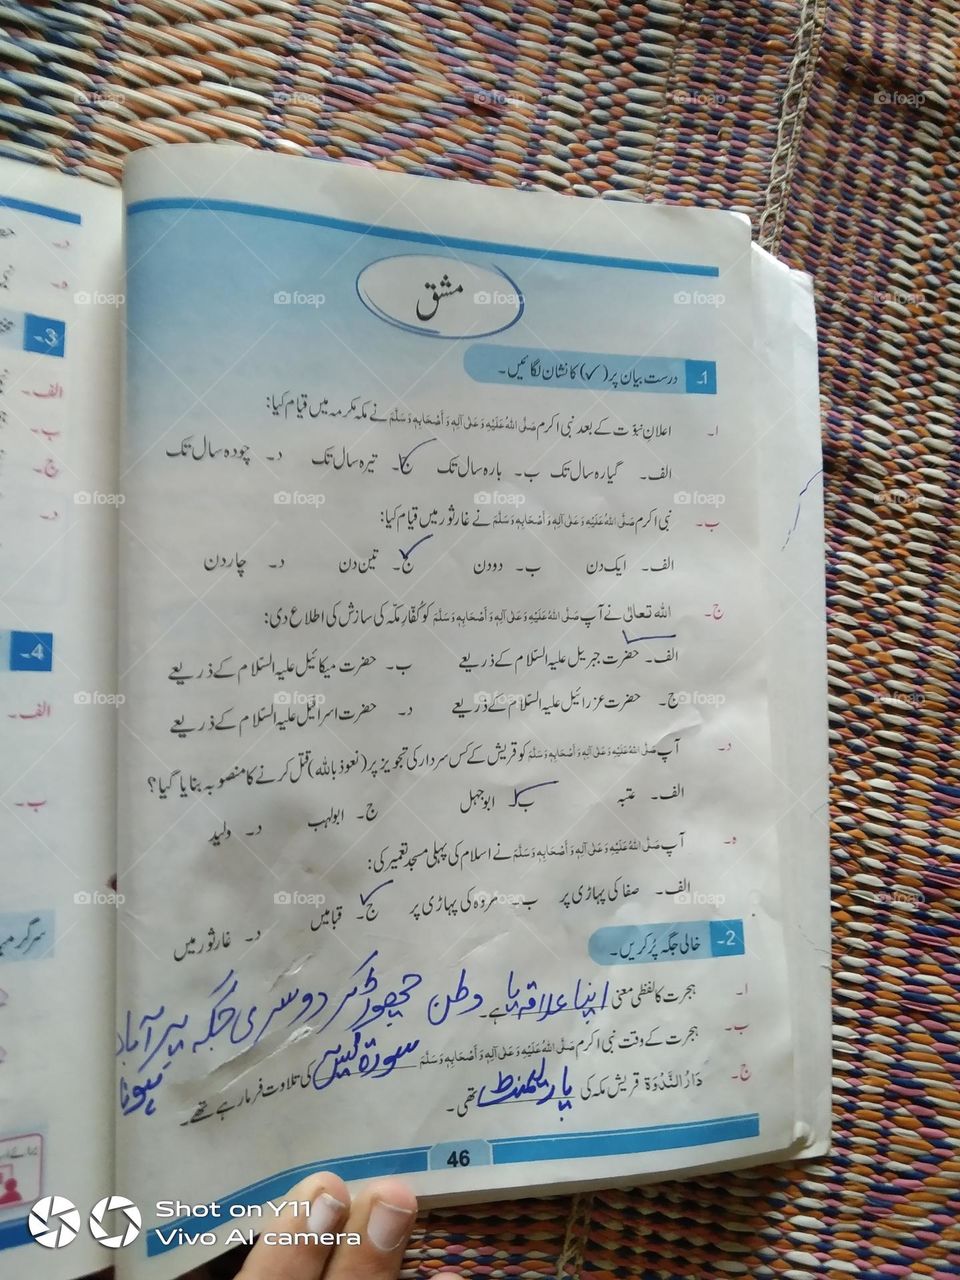 مشق
1۔ درست بیان پر (✓) کا نشان لگائیں۔
ا۔ اعلانِ نبوّت کے بعد نبی اکرم صَلَّی اللہُ عَلَیْہِ وَعَلٰی آلِہٖ وَاَصْحَابِہٖ وَسَلَّمَ نے مکہ مکرمہ میں قیام کیا:
الف۔ گیارہ سال تک ب۔ بارہ سال تک ج۔ تیرہ سال تک د۔ چودہ سال تک
ب۔ نبی اکرم صَلَّی اللہُ عَلَیْہِ وَعَلٰی آلِہٖ وَاَصْحَابِہٖ وَسَلَّمَ نے غارِ ثور میں قیام کیا:
الف۔ ایک دن ب۔ دو دن ج۔ تین دن د۔ چار دن
ج۔ اللہ تعالٰی نے آپ صَلَّی اللہُ عَلَیْہِ وَعَلٰی آلِہٖ وَاَصْحَابِہٖ وَسَلَّمَ کو کُفّارِ مکّہ کی سازش کی اطلاع دی:
الف۔ حضرت جبریل علیہ السّلام کے ذریعے ب۔ حضرت میکائیل علیہ السّلام کے ذریعے
ج۔ حضرت عزرائیل علیہ السّلام کے ذریعے د۔ حضرت اسرافیل علیہ السّلام کے ذریعے
د۔ آپ صَلَّی اللہُ عَلَیْہِ وَعَلٰی آلِہٖ وَاَصْحَابِہٖ وَسَلَّمَ کو قریش کے کس سردار کی تجویز پر (نعوذ باللہ) قتل کرنے کا منصوبہ بنایا گیا؟
الف۔ عتبہ ب۔ ابوجہل ج۔ ابولہب د۔ ولید
ہ۔ آپ صَلَّی اللہُ عَلَیْہِ وَعَلٰی آلِہٖ وَاَصْحَابِہٖ وَسَلَّمَ نے اسلام کی پہلی مسجد تعمیر کی:
الف۔ صفا کی پہاڑی پر ب۔ مروہ کی پہاڑی پر ج۔ قبا میں د۔ غارِ ثور میں
2۔ خالی جگہ پُر کریں۔
ا۔ ہجرت کا لفظی معنی اپنا علاقہ یا وطن چھوڑ کر دوسری جگہ پر آباد ہونا ہے۔
ب۔ ہجرت کے وقت نبی اکرم صَلَّی اللہُ عَلَیْہِ وَعَلٰی آلِہٖ وَاَصْحَابِہٖ وَسَلَّمَ سورۃ یٰسین کی تلاوت فرما رہے تھے۔
ج۔ دَارُ النَّدْوَۃ قریش مکہ کی پارلیمنٹ تھی۔
46
3۔
الف۔
ب۔
ج۔
د۔
4۔
الف۔
ب۔
Shot on Y11
Vivo AI camera
foap